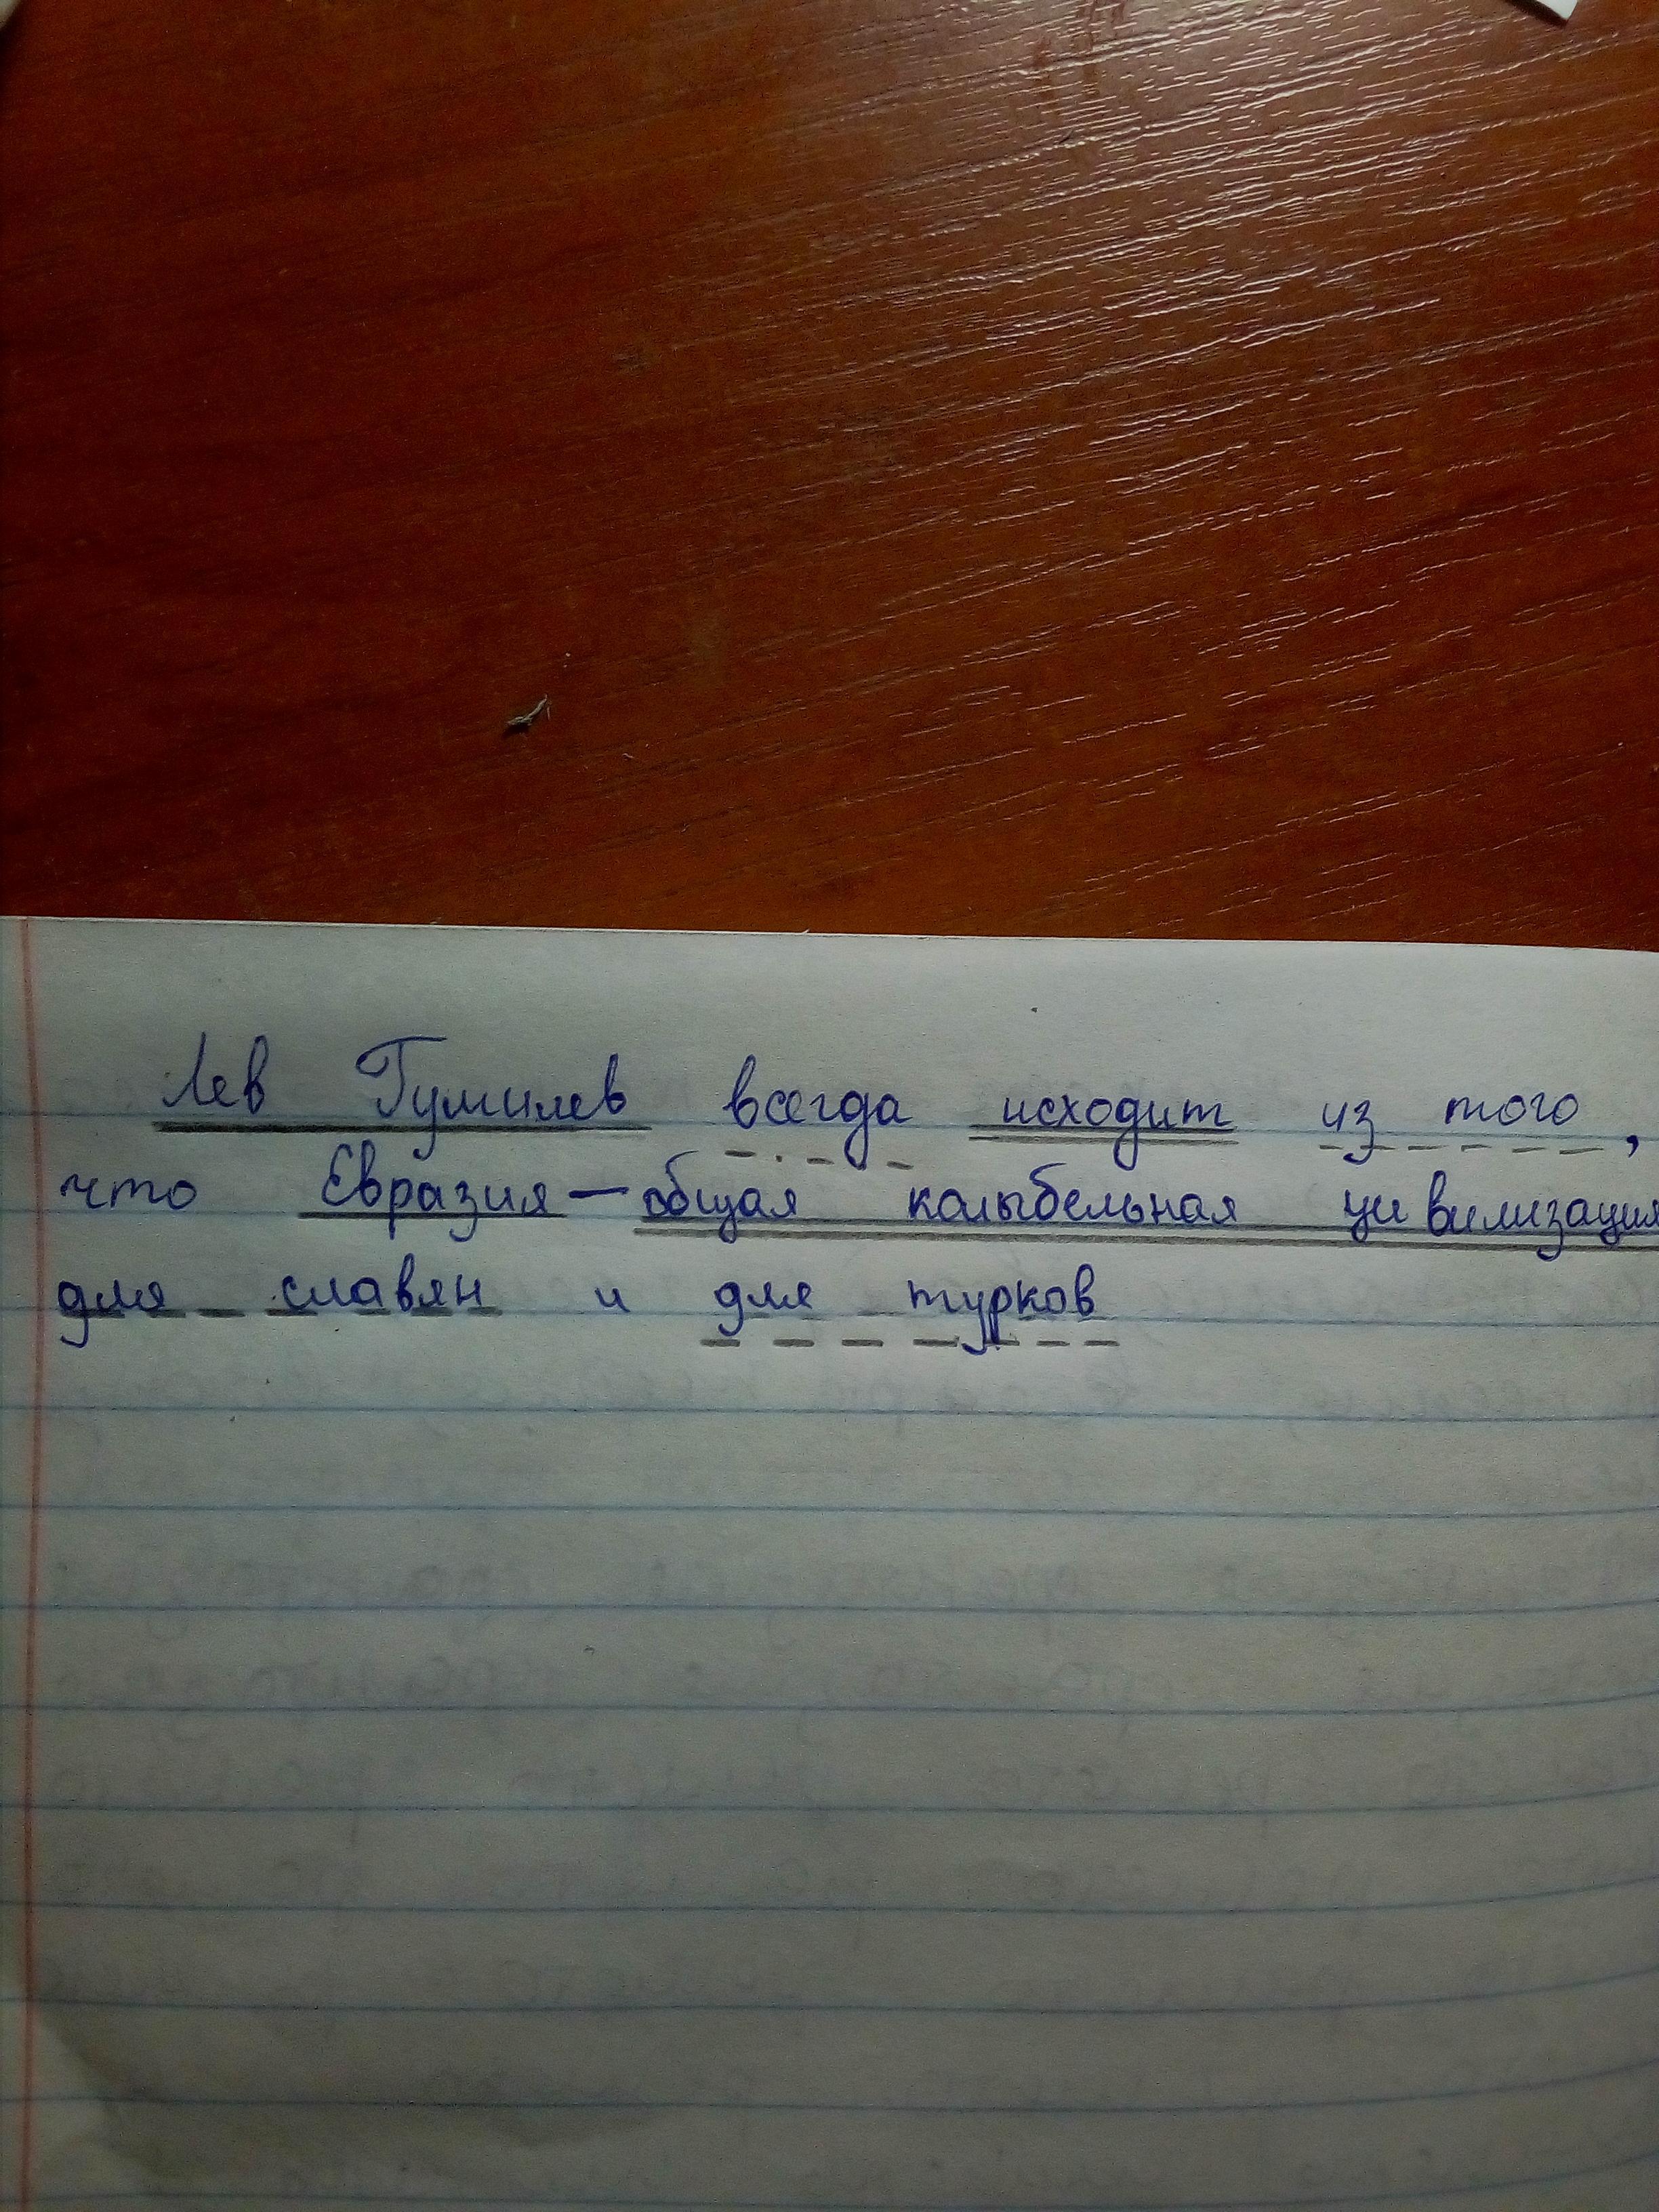 Лев Гумилев всегда исходит из того,
что Евразия — общая колыбельная цивилизация
для славян и для турков